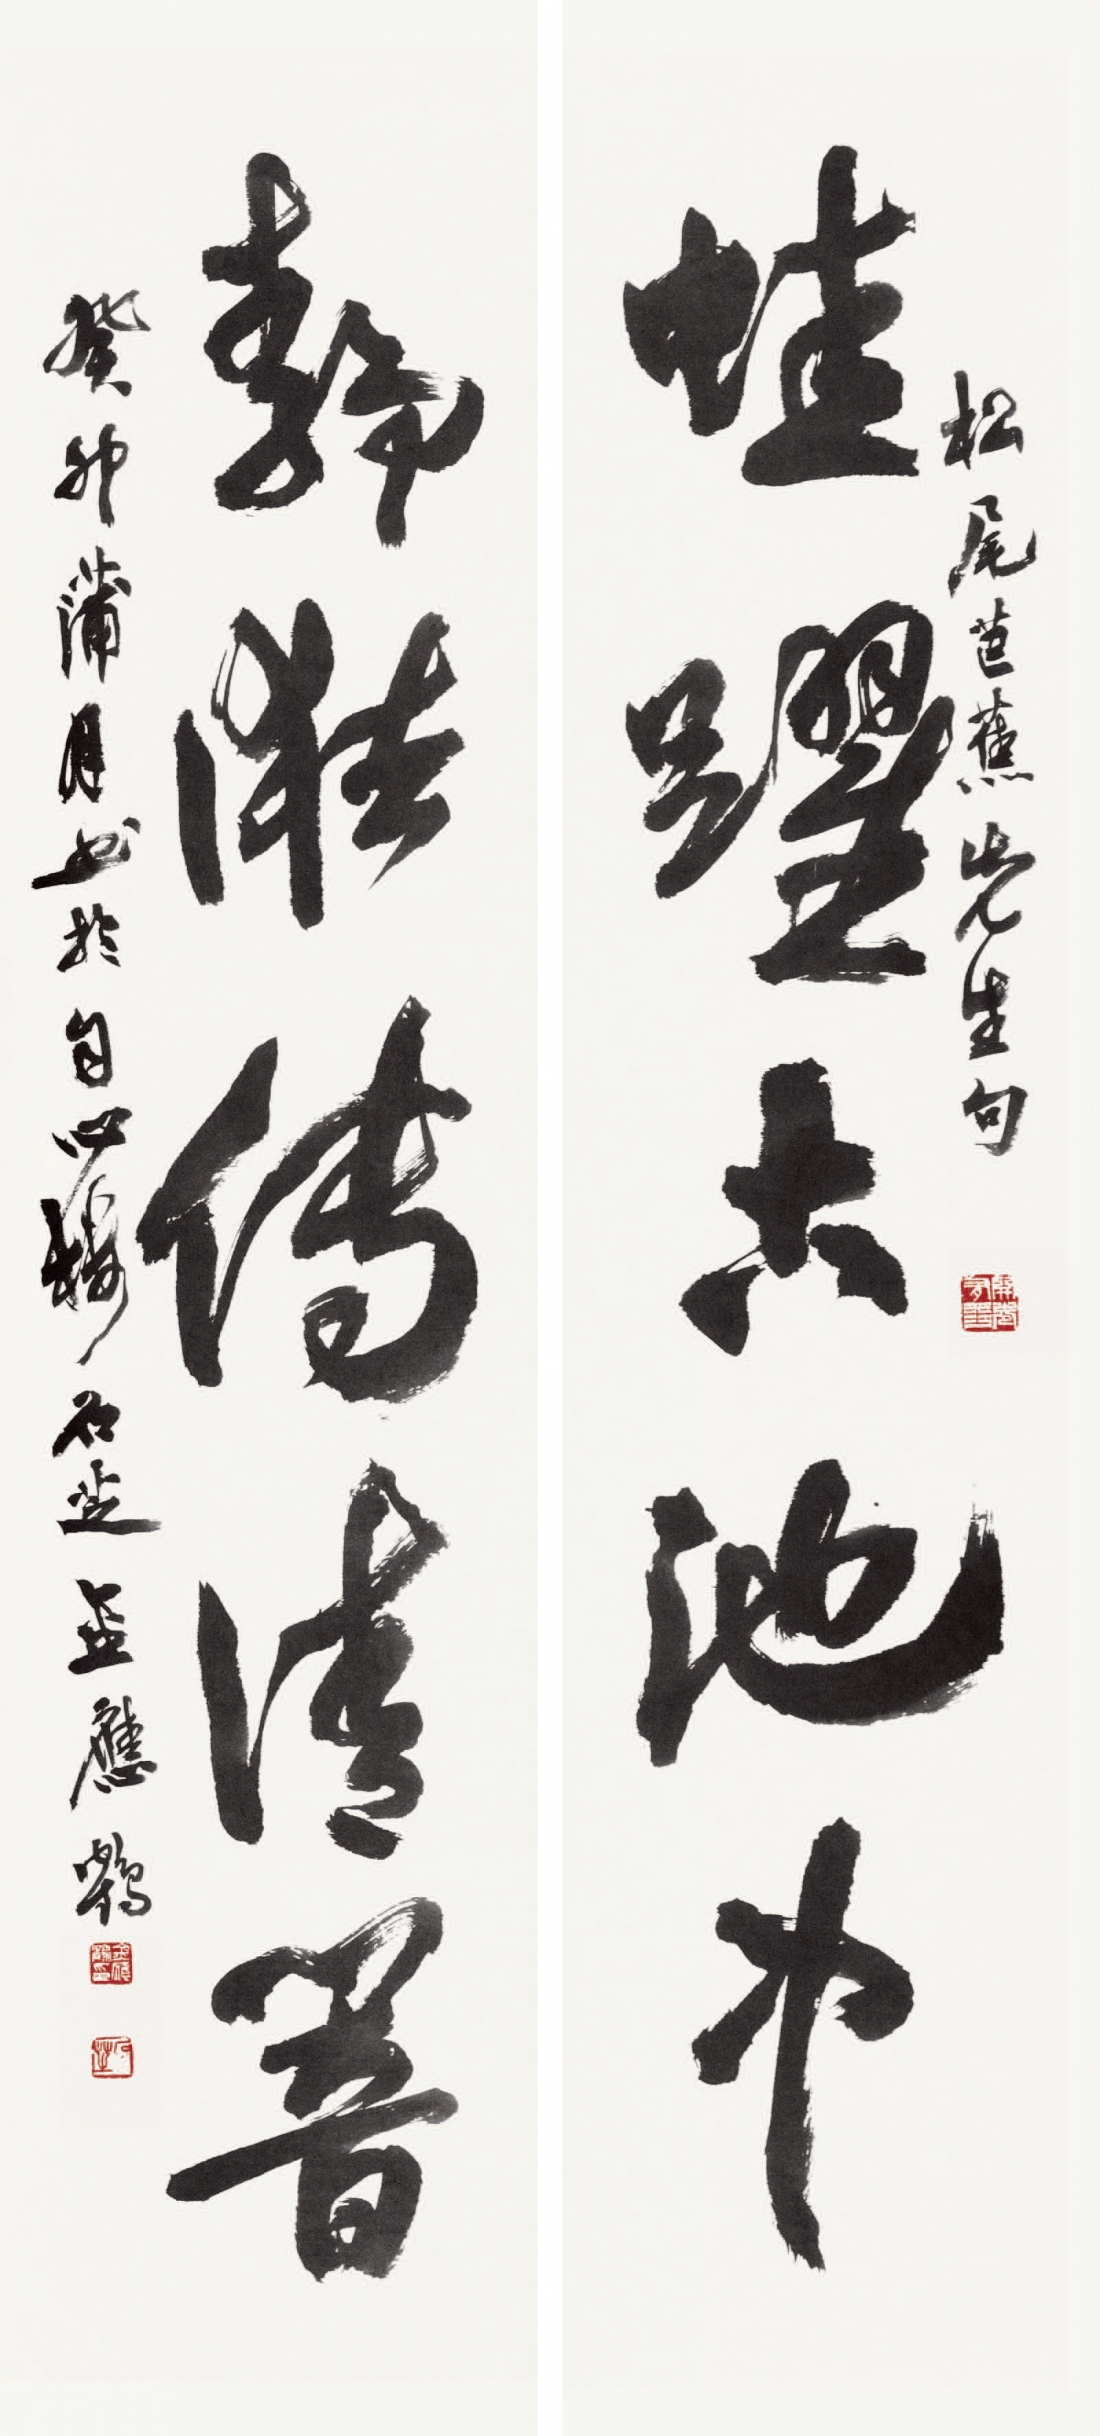 松尾芭蕉先生句
蛙躍古池中
靜潴傳清響
癸卯蒲月書於自心樓石芷金應鶴